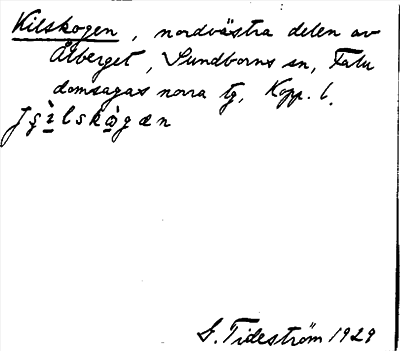 Kilskogen, nordvästra delen av
Åberget, Sundborns sn, Falu
domsagas norra tg, Kopp. l.
G. Tideström 1929